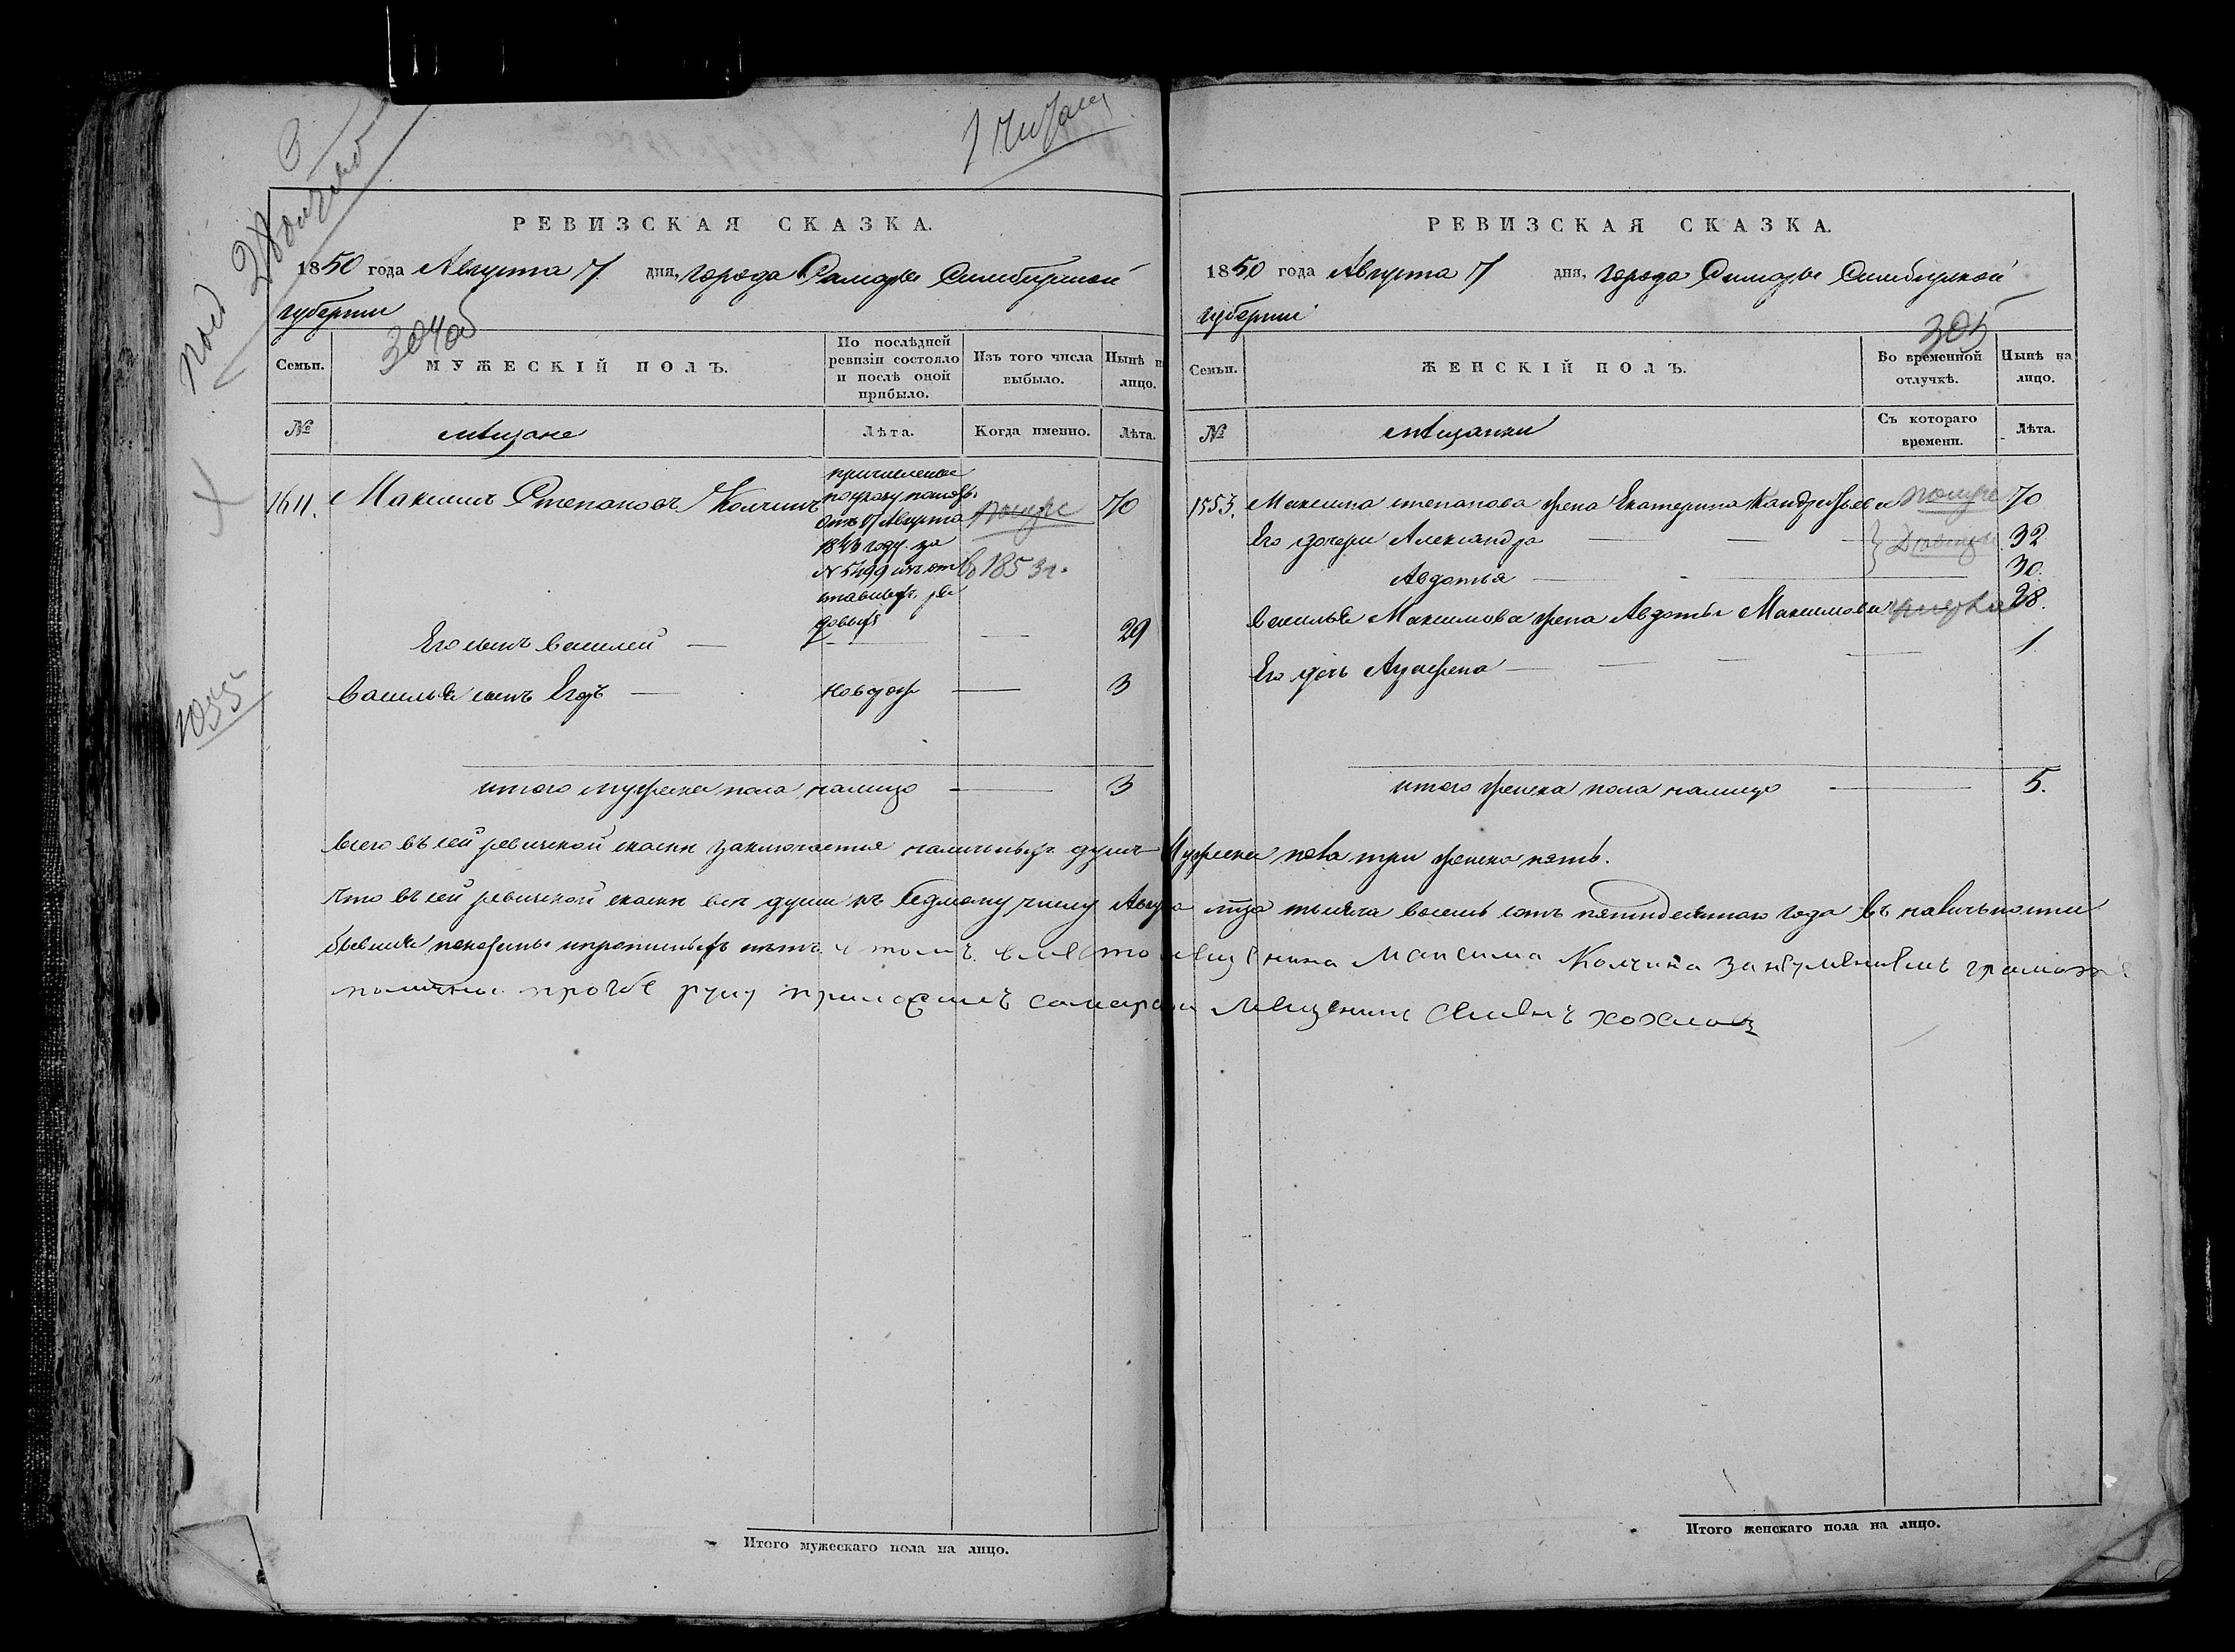 РЕВИЗСКАЯ СКАЗКА.
1850 года Августа 7 дня, города Самары Симбирской
губернии
304 об
Семьи.
МУЖЕСКІЙ ПОЛЪ.
По послѣдней ревизіи состояло и послѣ оной прибыло.
Изъ того числа выбыло.
Нынѣ н лицо.
№
мѣщане
Лѣта.
Когда именно.
Лѣта.
1611. Максимъ Степановъ Колчинъ
причисленъ
по указу
отъ 17 Августа
184 году за
№ 5499 изъ от
ставныхъ ря
довыхъ
померъ
въ 1853 г.
70
Его сынъ Василей — — 29
Васильѣ сынъ Егоръ — новорож — 3
итого мужеска пола налицо — 3
1055
РЕВИЗСКАЯ СКАЗКА.
1850 года Августа 7 дня, города Самары Симбирской
губернии
305
Семьи.
ЖЕНСКІЙ ПОЛЪ.
Во временной отлучкѣ.
Нынѣ на лицо.
№
мѣщанки
Съ котораго времени.
Лѣта.
1553. Максима степанова жена Екатерина 70
Его дочери Александра — — 32
Авдотья — 30.
Васильѣ Максимова жена Авдотья Максимова 28.
Его дочь — — — 1
итого женска пола налицо — 5.
Всего въ сей ревиской скаски заключается наличныхъ душъ Мужеска пола три женска пять.
Что въ сей ревиской скаски все души къ седмому числу Августа тысяча восемь сотъ пятидесятаго года въ наличности
бывшие показаны и прописныхъ нѣтъ. в томъ. вместо мещенина Максима Колчина за неуменнемъ грамоте
по прозбе руку приложилъ самарски мещенинъ хохловъ
Итого мужескаго пола на лицо.
Итого женскаго пола на лицо.